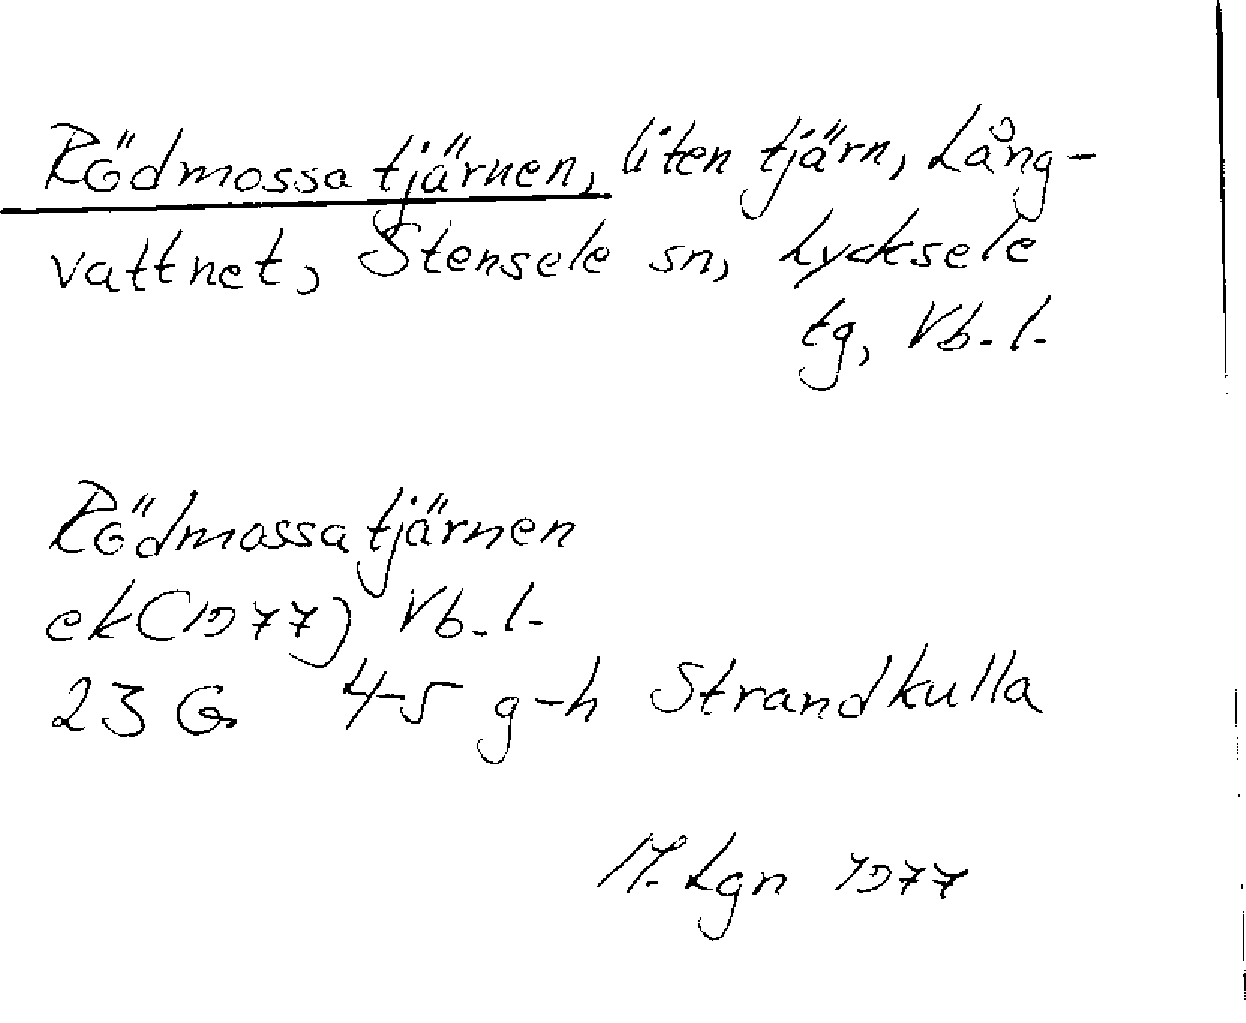 Rödmossatjärnen, liten tjärn, Lång-
vattnet, Stensele sn, Lycksele
tg, Vb. l.
Rödmossatjärnen
ek (1977) Vb. l.
23 G 4-5 g-h Strandkulla
M. Lgn 1977